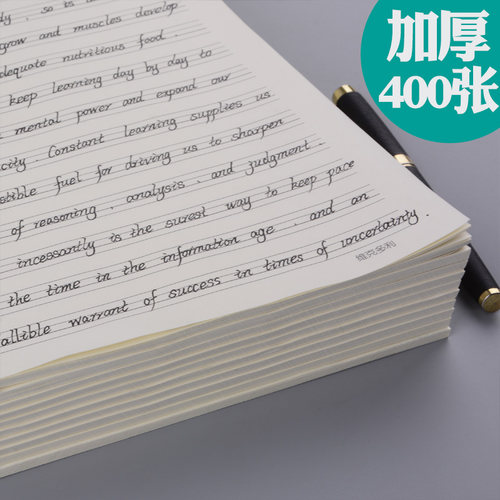 加厚
400张
dy, so is
grow and muscles develop
adequate nutritious food.
keep learning day by day to
mental power and expand our
city. Constant learning supplies us
stible fuel for driving us to sharpen
of reasoning, analysis, and judgment.
incessantly is the surest way to keep pace
the time in the information age, and an
allible warrant of success in times of uncertainty.
维克多利